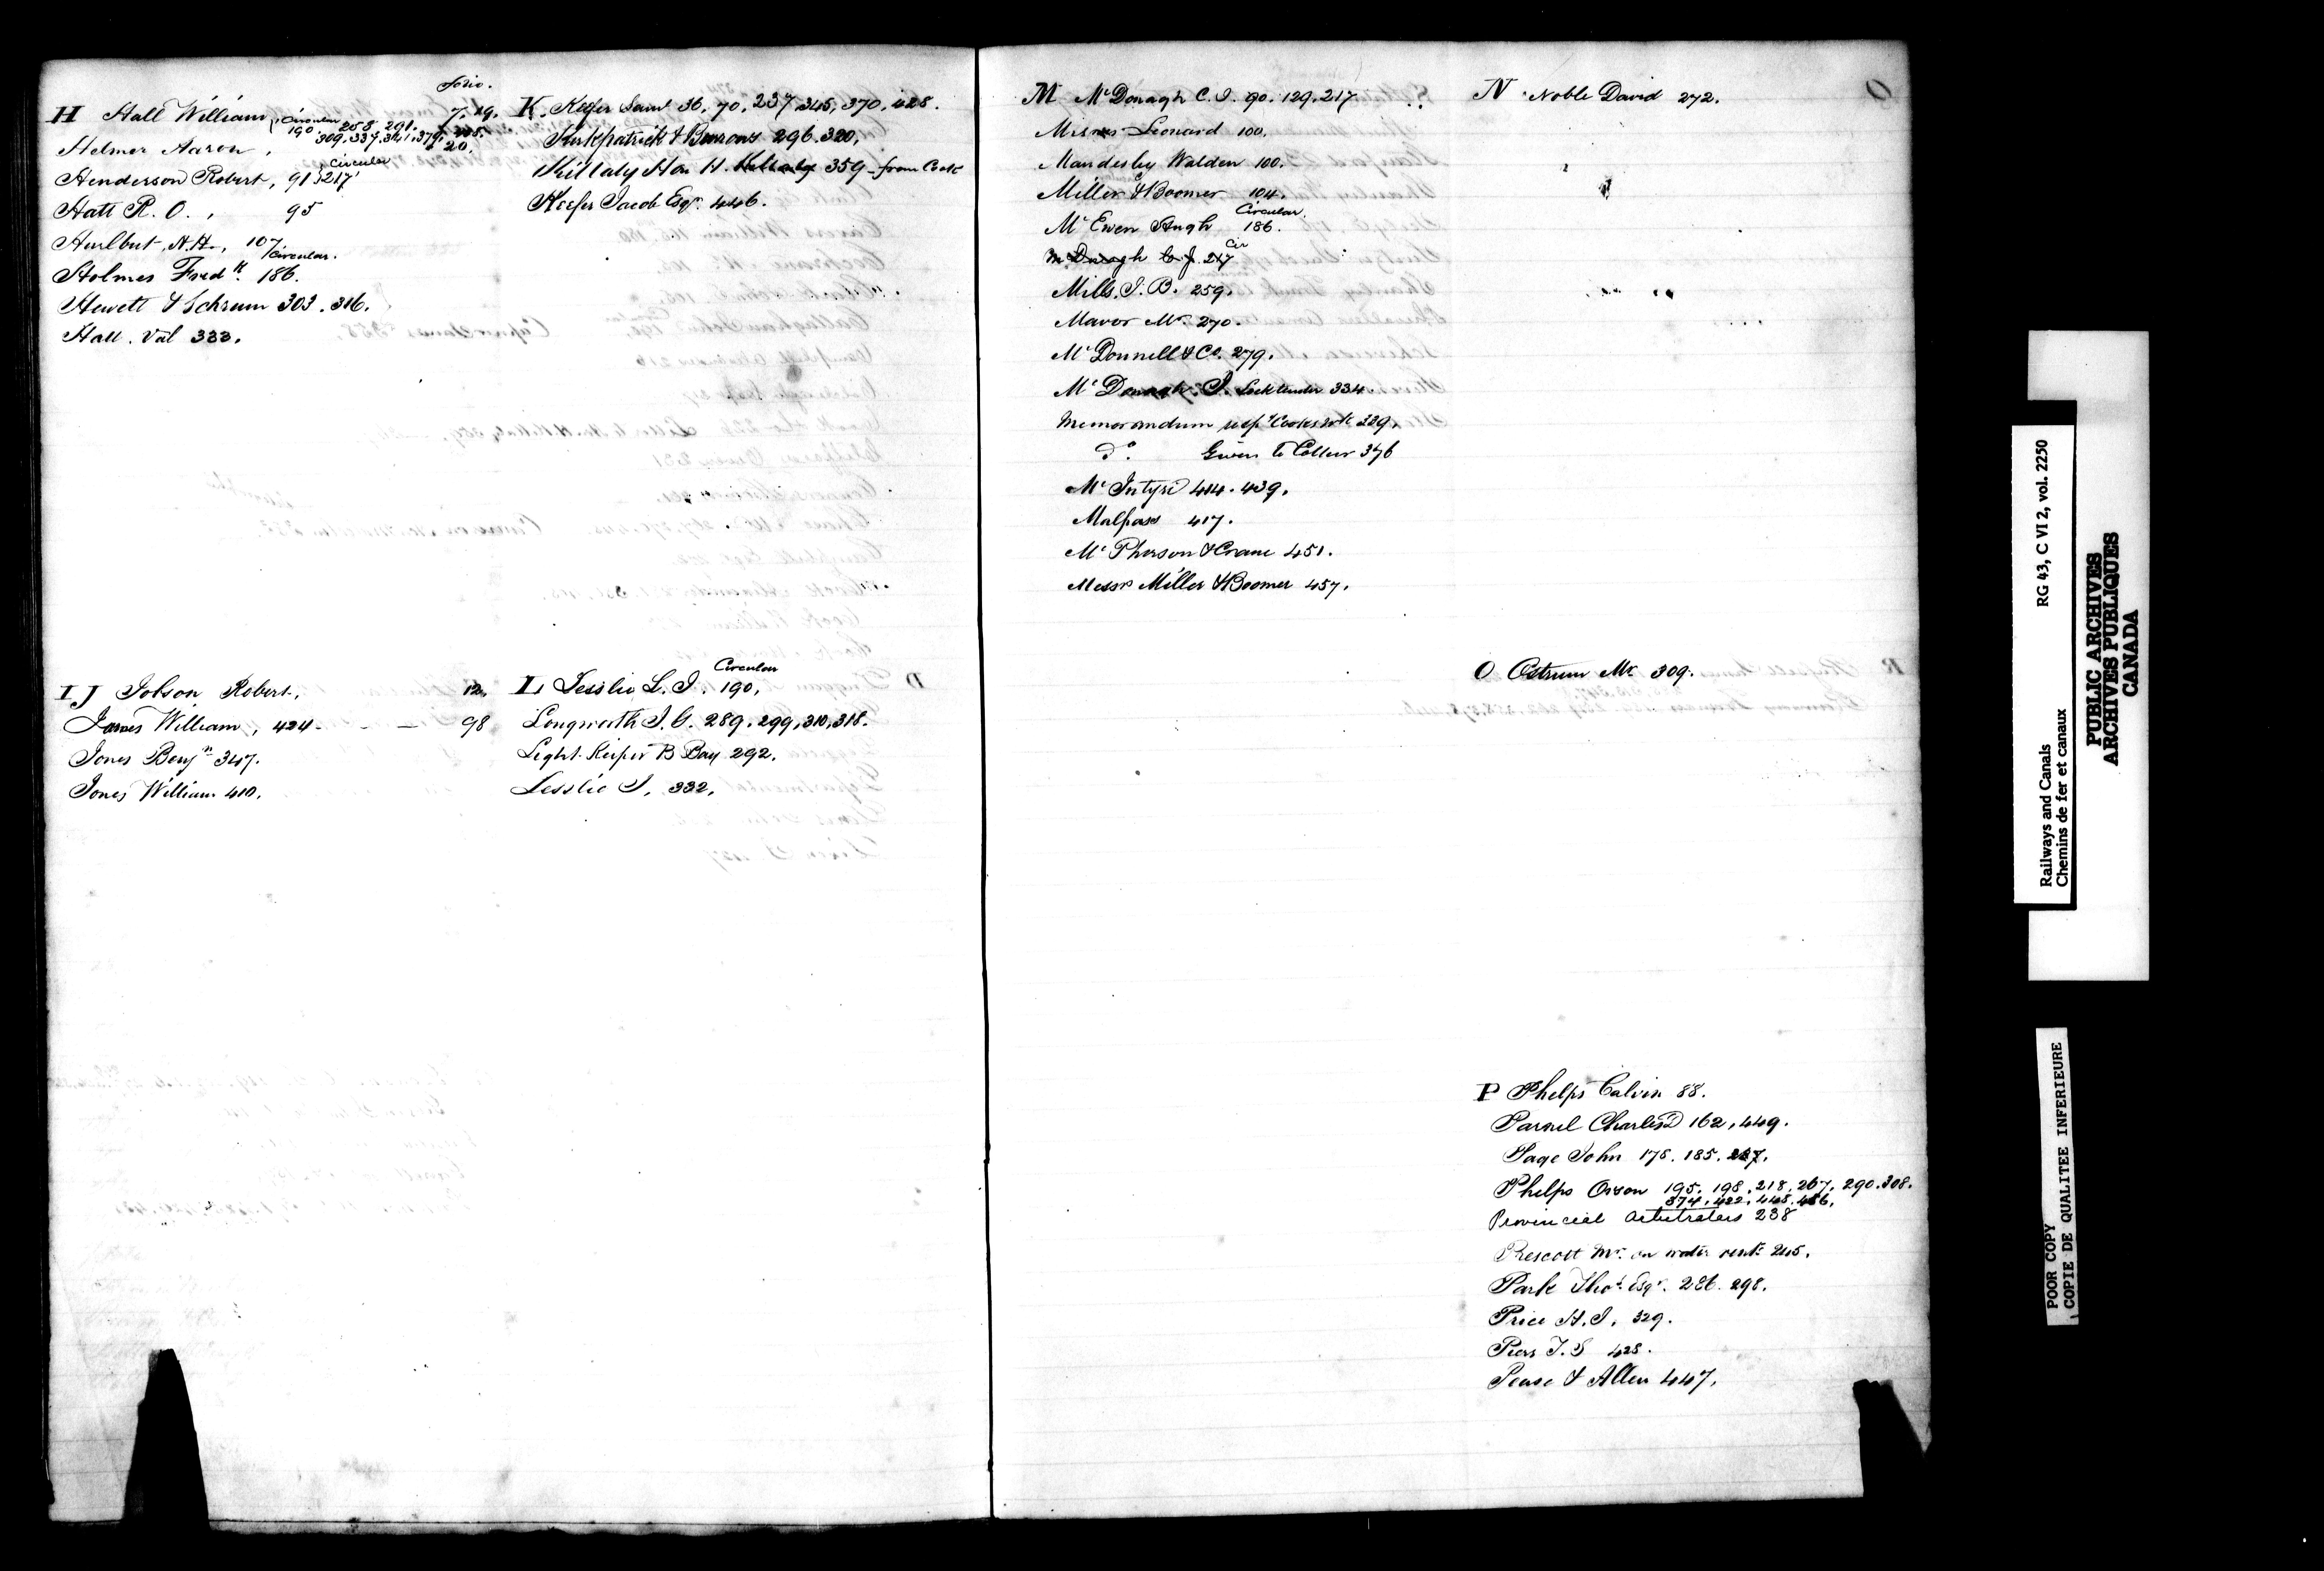 Folio.
H Hall William, Circular 190. 258. 291. 7. 19.
309. 337. 341. 379.
Helmer Aaron, 20.
Henderson Robert, 91 } Circular 217
Hatt R. O., 95
Hurlbut, N.H., 107.
Holmes Fredk. 186. Circular.
Hewett & Schram 303. 316.
Hall. Val 333.
I J Jobson Robert, 12.
James William, 424 - - — 98
Jones Benjn. 347.
Jones William 410.
K. Keefer Saml 36. 70. 237. 345, 370. 428.
Kirkpatrick & Burrows 296. 320.
Killaly Hon H. 359 - from Cook
Keefer Jacob Esqr. 446.
L Lesslie L. J. 190. Circular
Longworth J. G. 289. 299, 310, 318.
Light Keeper B Bay 292.
Lesslie J. 332.
M McDonagh C. J. 90. 129. 217
Leonard 100.
Walden 100.
Miller & Boomer 104.
McEwen Hugh 186. Circular.
McDonagh C. J. 217 Cir
Mills. J. B. 259.
Mavor Mr. 270.
McDonnell & Co. 279.
McDonagh. J. Locktender 334.
Memorandum resp
do. Given to Colleur 376
McIntyre 414. 439.
Malpass 417.
McPherson & Crane 451.
Messrs Miller & Boomer 457.
N Noble David 272.
O
O Ostrum Mr 309.
P Phelps Calvin 88.
Parnel Charles 162, 449.
Page John 178. 185.
Phelps Orson 195. 198. 218. 267. 290. 308.
374. 422. 448. 456.
Provincial Arbitrators 238
Prescott Mr. on water rents 245.
Park Thos. Esqr. 286. 298.
Price H. J. 329.
Piers T. S 428.
Pease & Allen 447.
Railways and Canals RG 43, C VI 2, vol. 2250
Chemins de fer et canaux
PUBLIC ARCHIVES
ARCHIVES PUBLIQUES
CANADA
POOR COPY
COPIE DE QUALITEE INFERIEURE